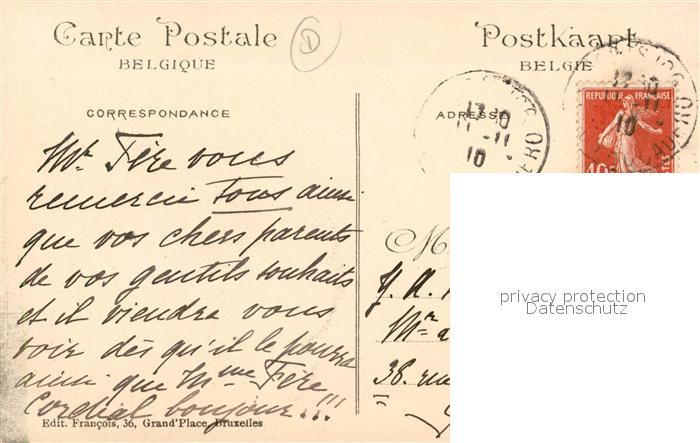 Carte Postale
BELGIQUE
D
Postkaart
BELGIË
CORRESPONDANCE
ADRESSE
17 30
11 -11
10
RÉPUBLIQUE FRANÇAISE
10
Mr Fère vous
remercie tous ainsi
que vos chers parents
de vos gentils souhaits
et il viendra vous
voir dès qu'il le pourra
ainsi que Mme Fère
Cordial bonjour!!!
M
Mr
38. rue
privacy protection
Datenschutz
Edit. François, 36, Grand'Place, Bruxelles